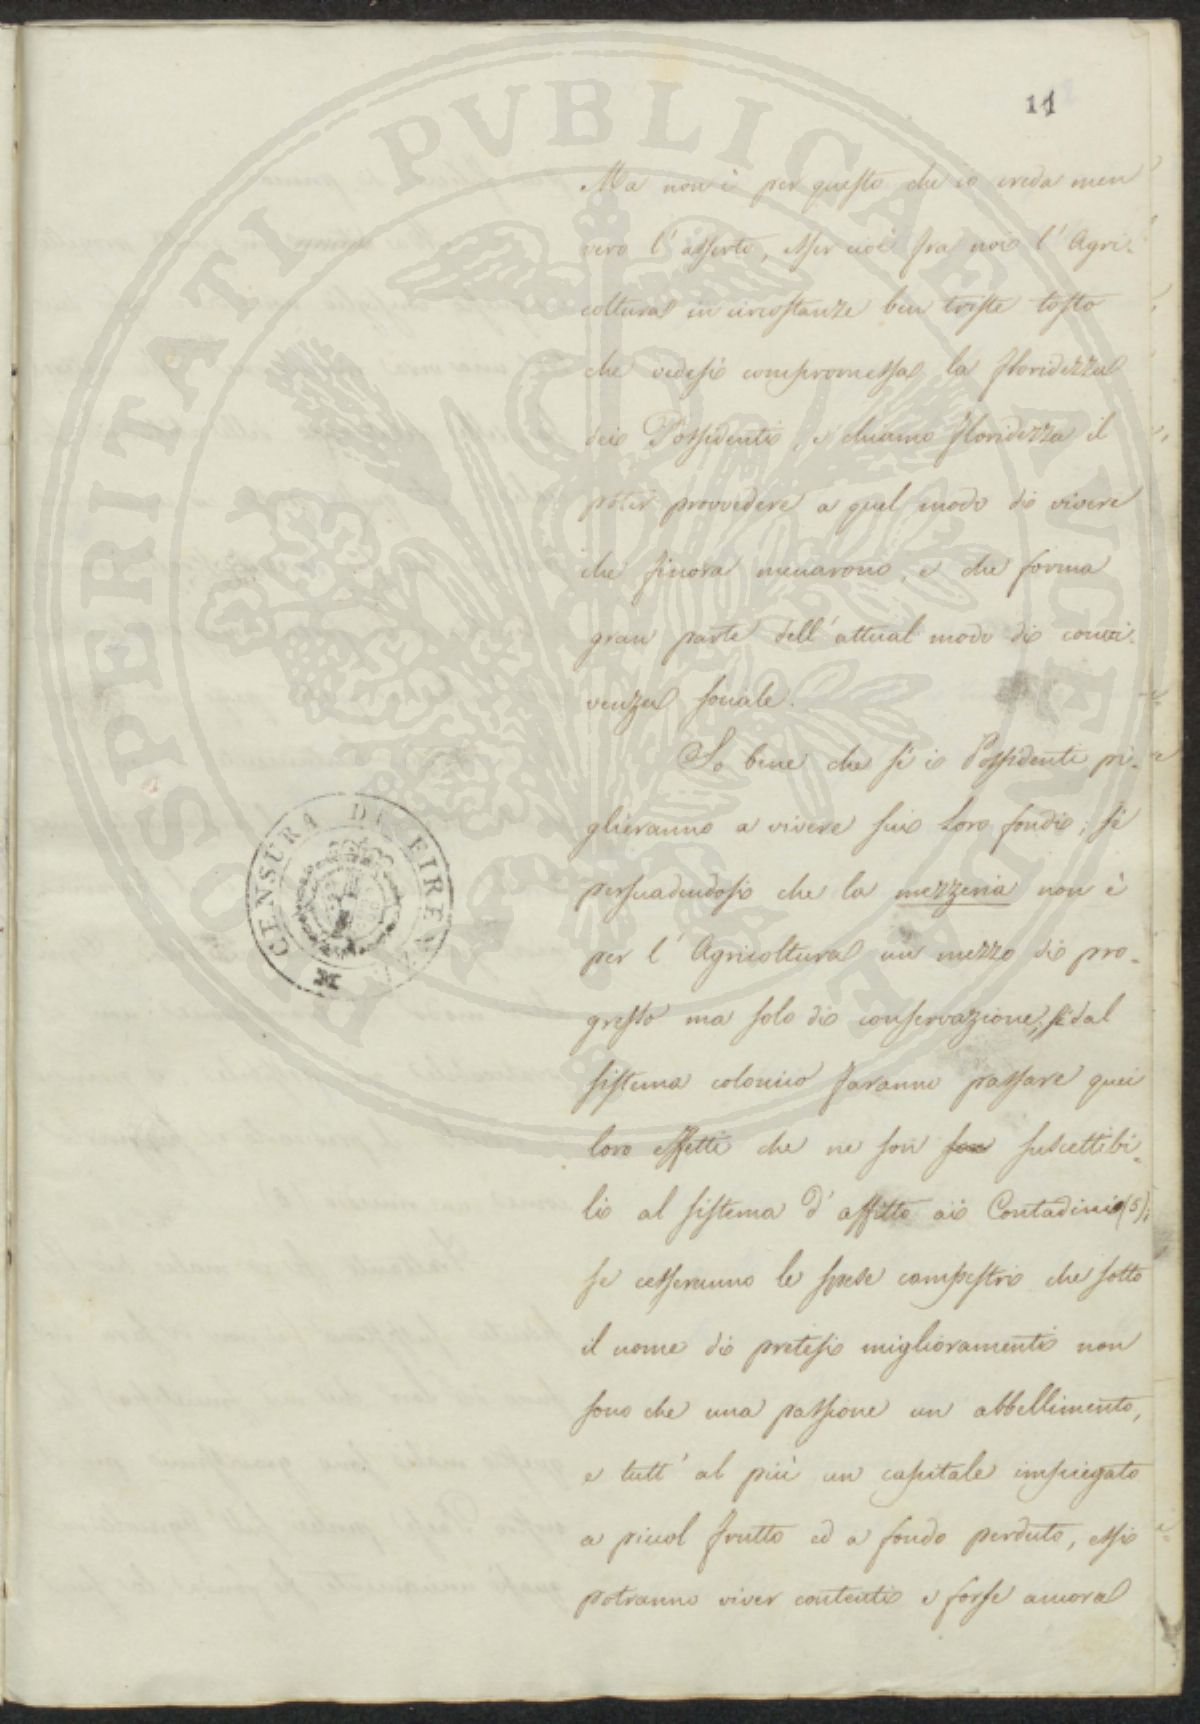 11
Ma non è per questo che io creda men
vero l'asserto, esser cioè fra noi l'Agri-
coltura in circostanze ben triste tosto
che vedesi compromessa la floridezza
dei Possidenti, e chiamo floridezza il
poter provvedere a quel modo di vivere
che finora menarono, e che forma
gran parte dell'attual modo di convi-
venza sociale.
So bene che se i Possidenti pi-
glieranno a vivere sui loro fondi; se
persuadendosi che la mezzeria non è
per l'Agricoltura un mezzo di pro-
gresso ma solo di conservazione, se dal
sistema colonico faranno passare quei
loro effetti che ne son son suscettibi-
li al sistema d'affitto ai Contadini (5);
se cesseranno le spese campestri che sotto
il nome di pretesi miglioramenti non
sono che una passione un abbellimento,
e tutt'al più un capitale impiegato
a piccol frutto ed a fondo perduto, essi
potranno viver contenti e forse ancora
CENSURA DI FIRENZE
PROSPERITATI PVBLICAE AVGENDAE